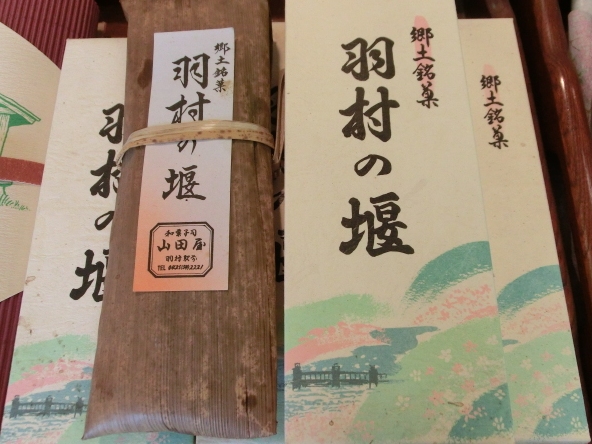 郷土銘菓
羽村の堰
和菓子司
山田屋
羽村駅前
郷土銘菓
羽村の堰
郷土銘菓
羽村の堰